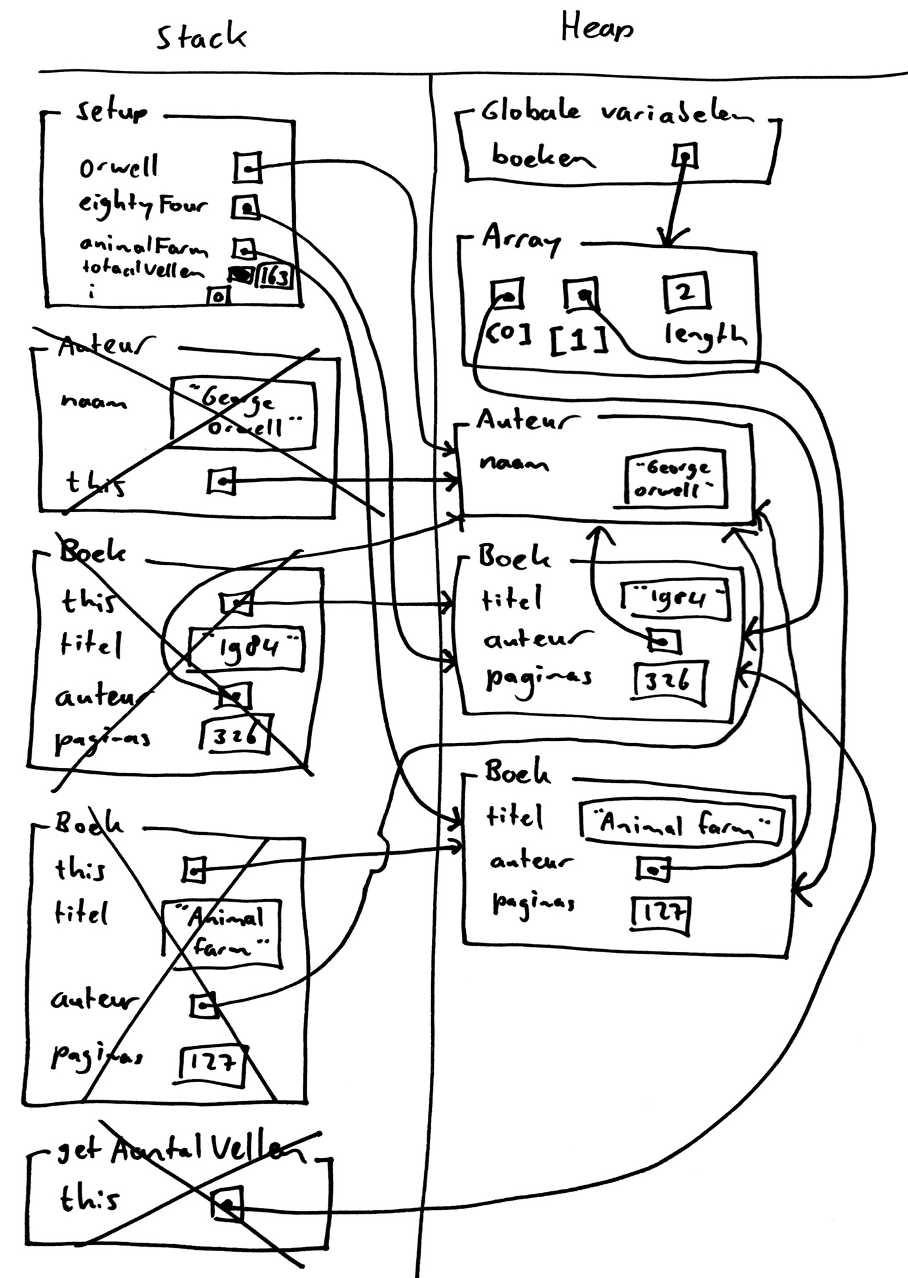 Stack
Heap
setup
orwell
eightyFour
animalFarm
totaalVellen 163
i 0
Auteur
naam "George
orwell"
this
Boek
this
titel "1984"
auteur
paginas 326
Boek
this
titel "Animal
farm"
auteur
paginas 127
getAantalVellen
this
Globale variabelen
boeken
Array
2
[0] [1] length
Auteur
naam "George
orwell"
Boek
titel "1984"
auteur
paginas 326
Boek
titel "Animal farm"
auteur
paginas 127